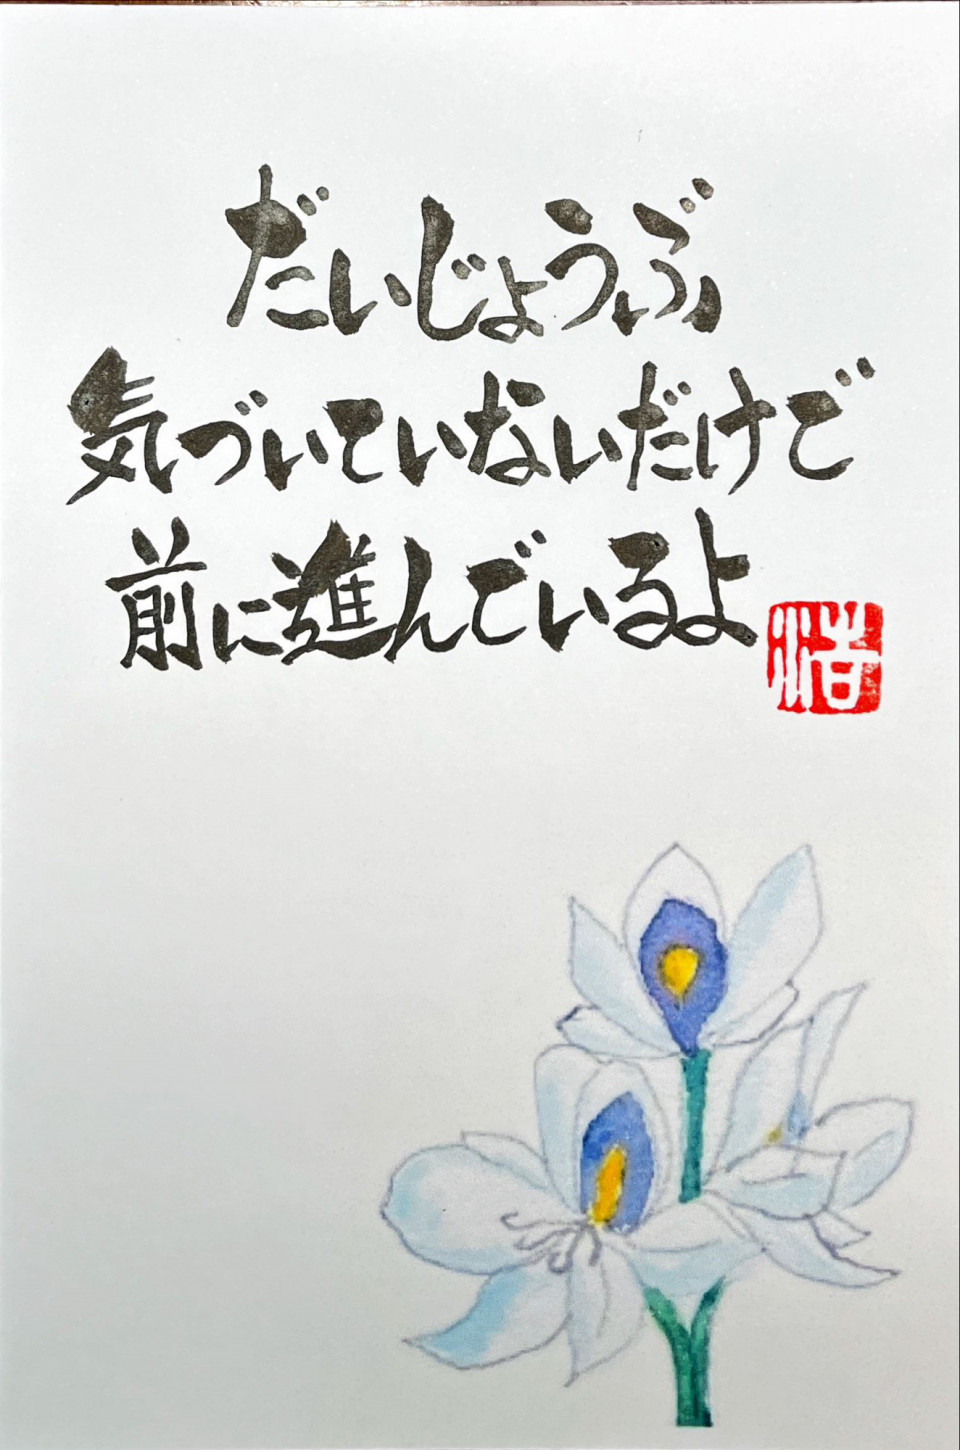 だいじょうぶ
気づいていないだけで
前に進んでいるよ